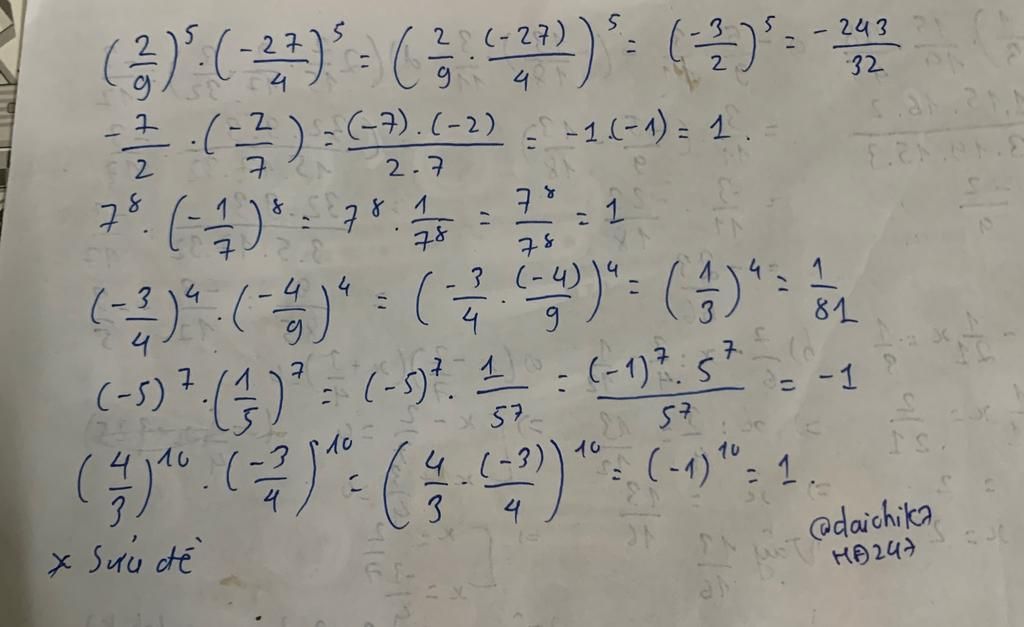 (2/9)^5 . (-27/4)^5 = (2/9 . (-27)/4)^5 = (-3/2)^5 = -243/32
-7/2 . (-2/7) = (-7).(-2)/2.7 = -1.(-1) = 1.
7^8 . (-1/7)^8 = 7^8 . 1/7^8 = 7^8/7^8 = 1
(-3/4)^4 . (-4/9)^4 = (-3/4 . (-4)/9)^4 = (1/3)^4 = 1/81
(-5)^7 . (1/5)^7 = (-5)^7 . 1/5^7 = (-1)^7 . 5^7/5^7 = -1
(4/3)^10 . (-3/4)^10 = (4/3 . (-3)/4)^10 = (-1)^10 = 1.
@daichik7
HĐ247
x Sửu đề